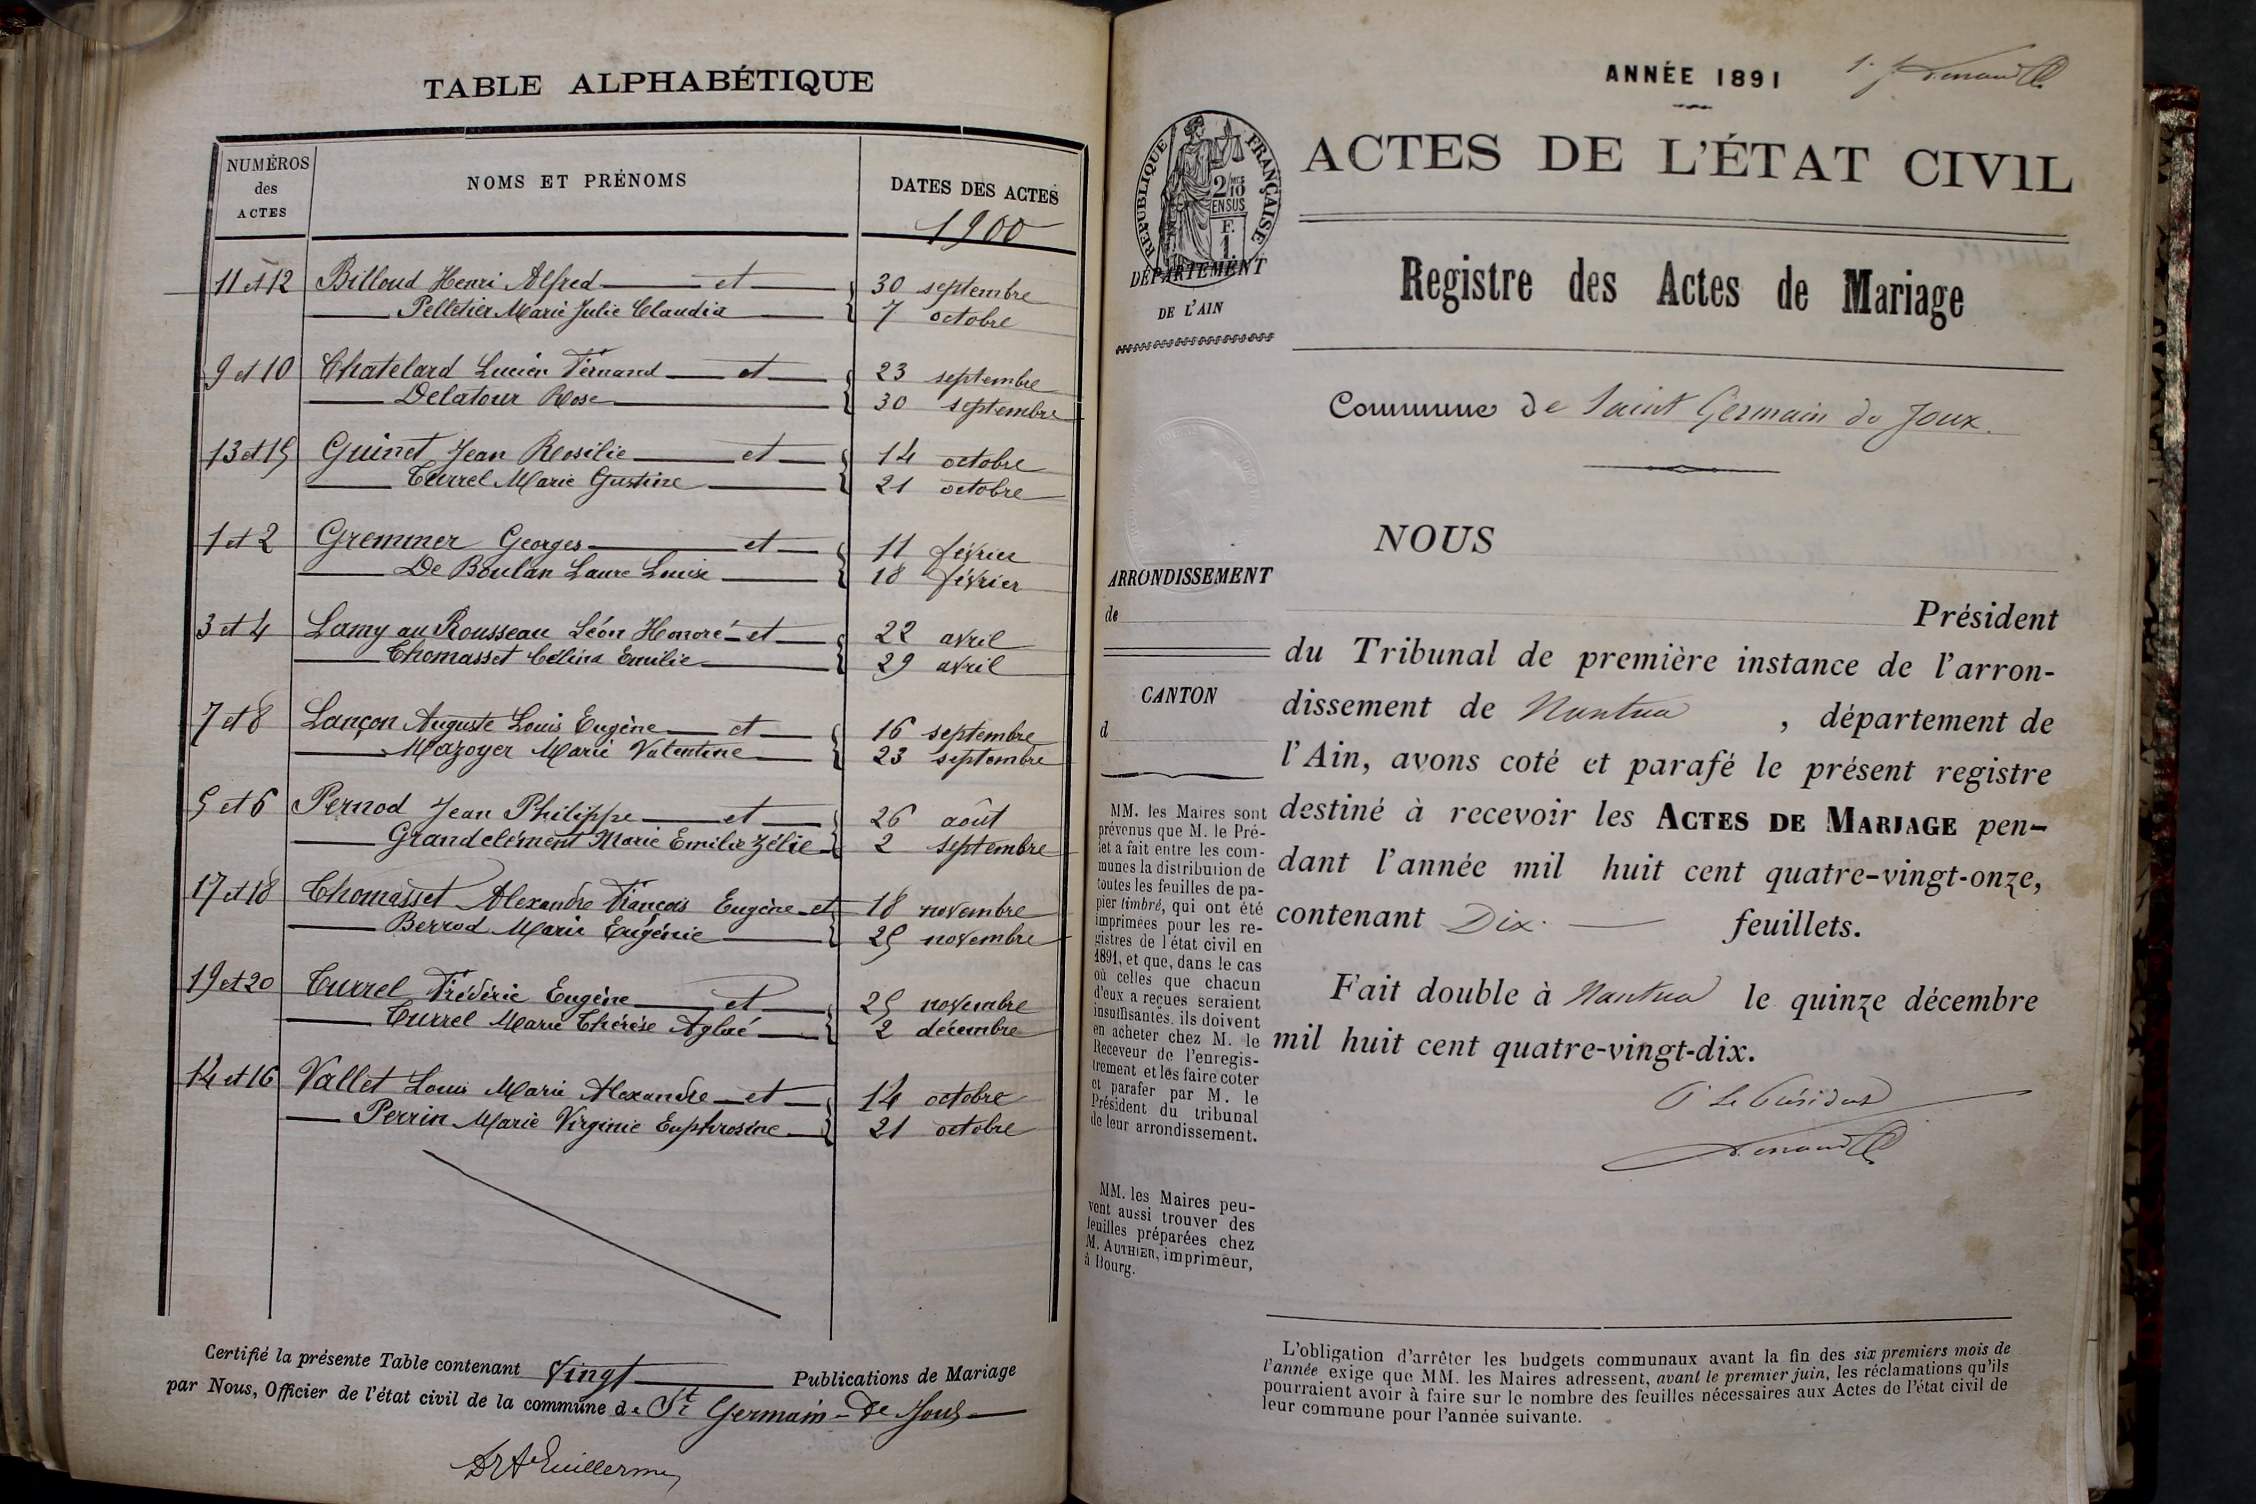 TABLE ALPHABÉTIQUE
NUMÉROS des ACTES
NOMS ET PRÉNOMS
DATES DES ACTES
1900
11 et 12 Billoud Henri Alfred et 30 septembre
Pelletier Marie Julie Claudia 7 octobre
9 et 10 Chatelard Lucien Fernand et 23 septembre
Delatour Rose 30 septembre
13 et 15 Guinet Jean Rosilie et 14 octobre
Turrel Marie Justine 21 octobre
1 et 2 Gremmer Georges et 11 février
De Boulan Laure Louise 18 février
3 et 4 Lamy au Rousseau Léon Honoré et 22 avril
Thomasset Célina Emilie 29 avril
7 et 8 Lançon Auguste Louis Eugène et 16 septembre
Mazoyer Marie Valentine 23 septembre
5 et 6 Pernod Jean Philippe et 26 août
Grandclément Marie Emilie Zélie 2 septembre
17 et 18 Thomasset Alexandre François Eugène et 18 novembre
Berrod Marie Eugénie 25 novembre
19 et 20 Turrel Frédéric Eugène et 25 novembre
Turrel Marie Thérèse Aglaé 2 décembre
14 et 16 Vallet Louis Marie Alexandre et 14 octobre
Perrin Marie Virginie Euphrosine 21 octobre
Certifié la présente Table contenant Vingt Publications de Mariage
par Nous, Officier de l'état civil de la commune de St Germain-de-Joux
ANNÉE 1891
ACTES DE L'ÉTAT CIVIL
RÉPUBLIQUE FRANÇAISE
2/10 EN SUS
F. 1.
DÉPARTEMENT
DE L'AIN
Registre des Actes de Mariage
Commune de Saint Germain de Joux.
NOUS
ARRONDISSEMENT
de
CANTON
d
Président
du Tribunal de première instance de l'arron-
dissement de Nantua, département de
l'Ain, avons coté et parafé le présent registre
destiné à recevoir les ACTES DE MARIAGE pen-
dant l'année mil huit cent quatre-vingt-onze,
contenant Dix feuillets.
Fait double à Nantua le quinze décembre
mil huit cent quatre-vingt-dix.
P. Le Président
MM. les Maires sont
prévenus que M. le Pré-
fet a fait entre les com-
munes la distribution de
toutes les feuilles de pa-
pier timbré, qui ont été
imprimées pour les re-
gistres de l'état civil en
1891, et que, dans le cas
où celles que chacun
d'eux a reçues seraient
insuffisantes, ils doivent
en acheter chez M. le
Receveur de l'enregis-
trement et les faire coter
et parafer par M. le
Président du tribunal
de leur arrondissement.
MM. les Maires peu-
vent aussi trouver des
feuilles préparées chez
M. AUTHIER, imprimeur,
à Bourg.
L'obligation d'arrêter les budgets communaux avant la fin des six premiers mois de
l'année exige que MM. les Maires adressent, avant le premier juin, les réclamations qu'ils
pourraient avoir à faire sur le nombre des feuilles nécessaires aux Actes de l'état civil de
leur commune pour l'année suivante.